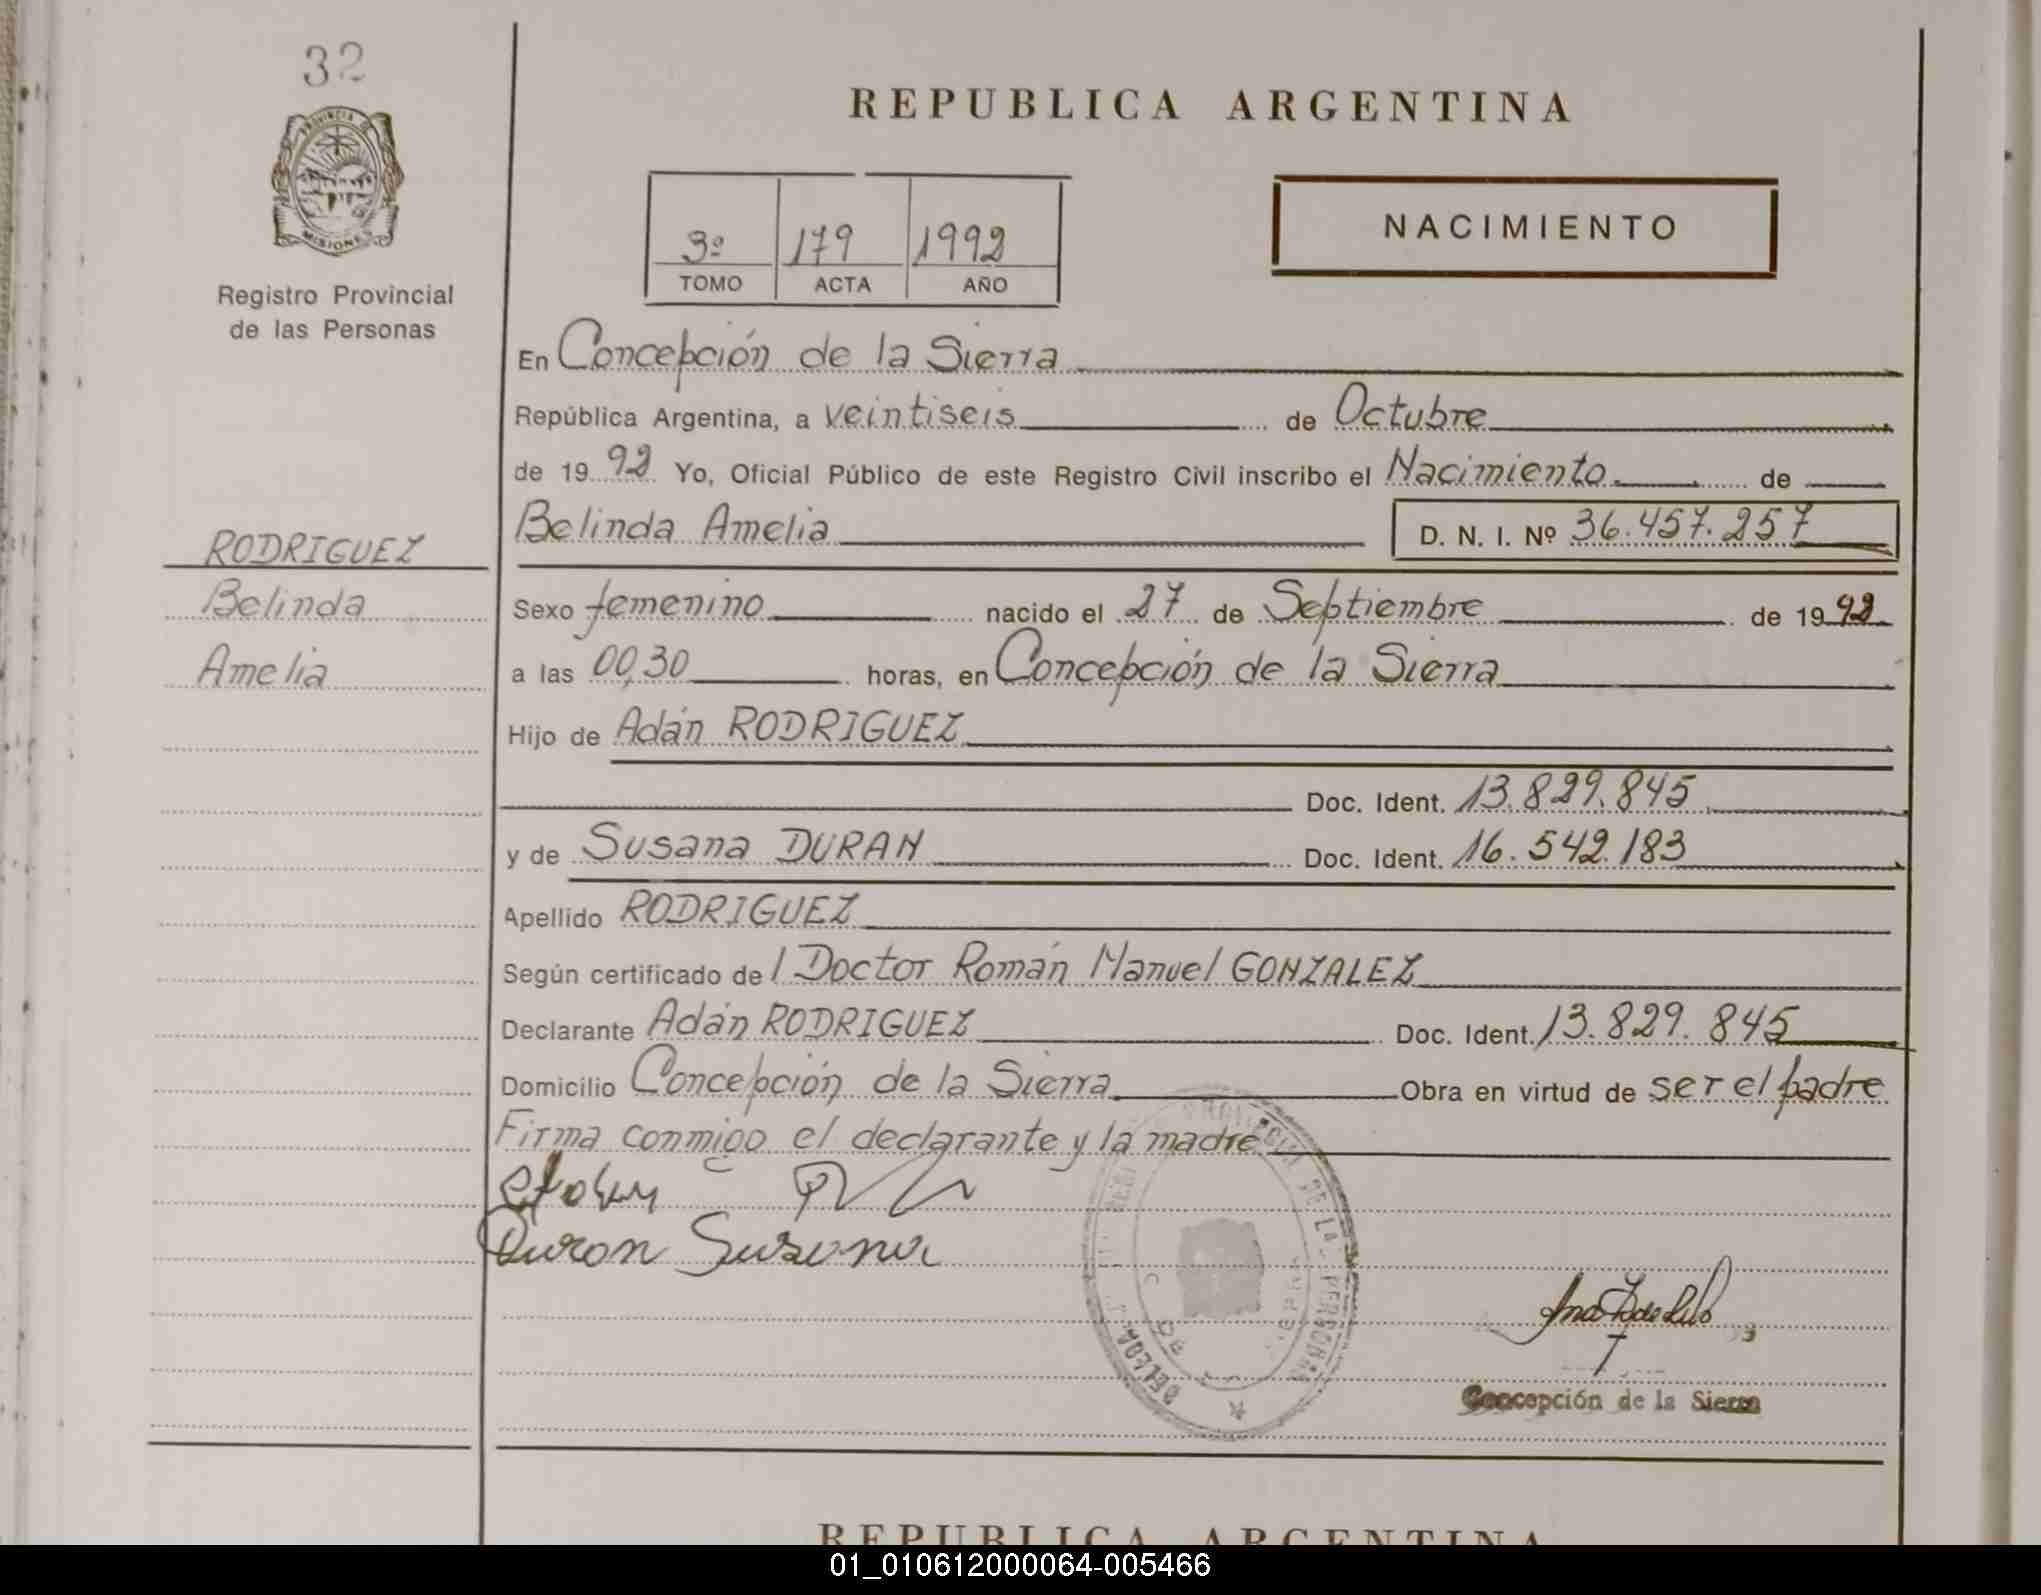 32
PROVINCIA DE
MISIONES
Registro Provincial
de las Personas
REPUBLICA ARGENTINA
3º 179 1992
TOMO ACTA AÑO
NACIMIENTO
En Concepción de la Sierra
República Argentina, a veintiseis de Octubre
de 19 92 Yo, Oficial Público de este Registro Civil inscribo el Nacimiento de
Belinda Amelia D. N. I. Nº 36.457.257
RODRIGUEZ
Belinda
Amelia
Sexo femenino nacido el 27 de Septiembre de 19 92
a las 00,30 horas, en Concepción de la Sierra
Hijo de Adán RODRIGUEZ
Doc. Ident. 13.829.845
y de Susana DURAN Doc. Ident. 16.542.183
Apellido RODRIGUEZ
Según certificado de l Doctor Román Manuel GONZALEZ
Declarante Adán RODRIGUEZ Doc. Ident. 13.829.845
Domicilio Concepción de la Sierra Obra en virtud de ser el padre
Firma conmigo el declarante y la madre
Duron Susana
DE LAS PERSONAS
Concepción de la Sierra
REPUBLICA ARGENTINA
01_010612000064-005466